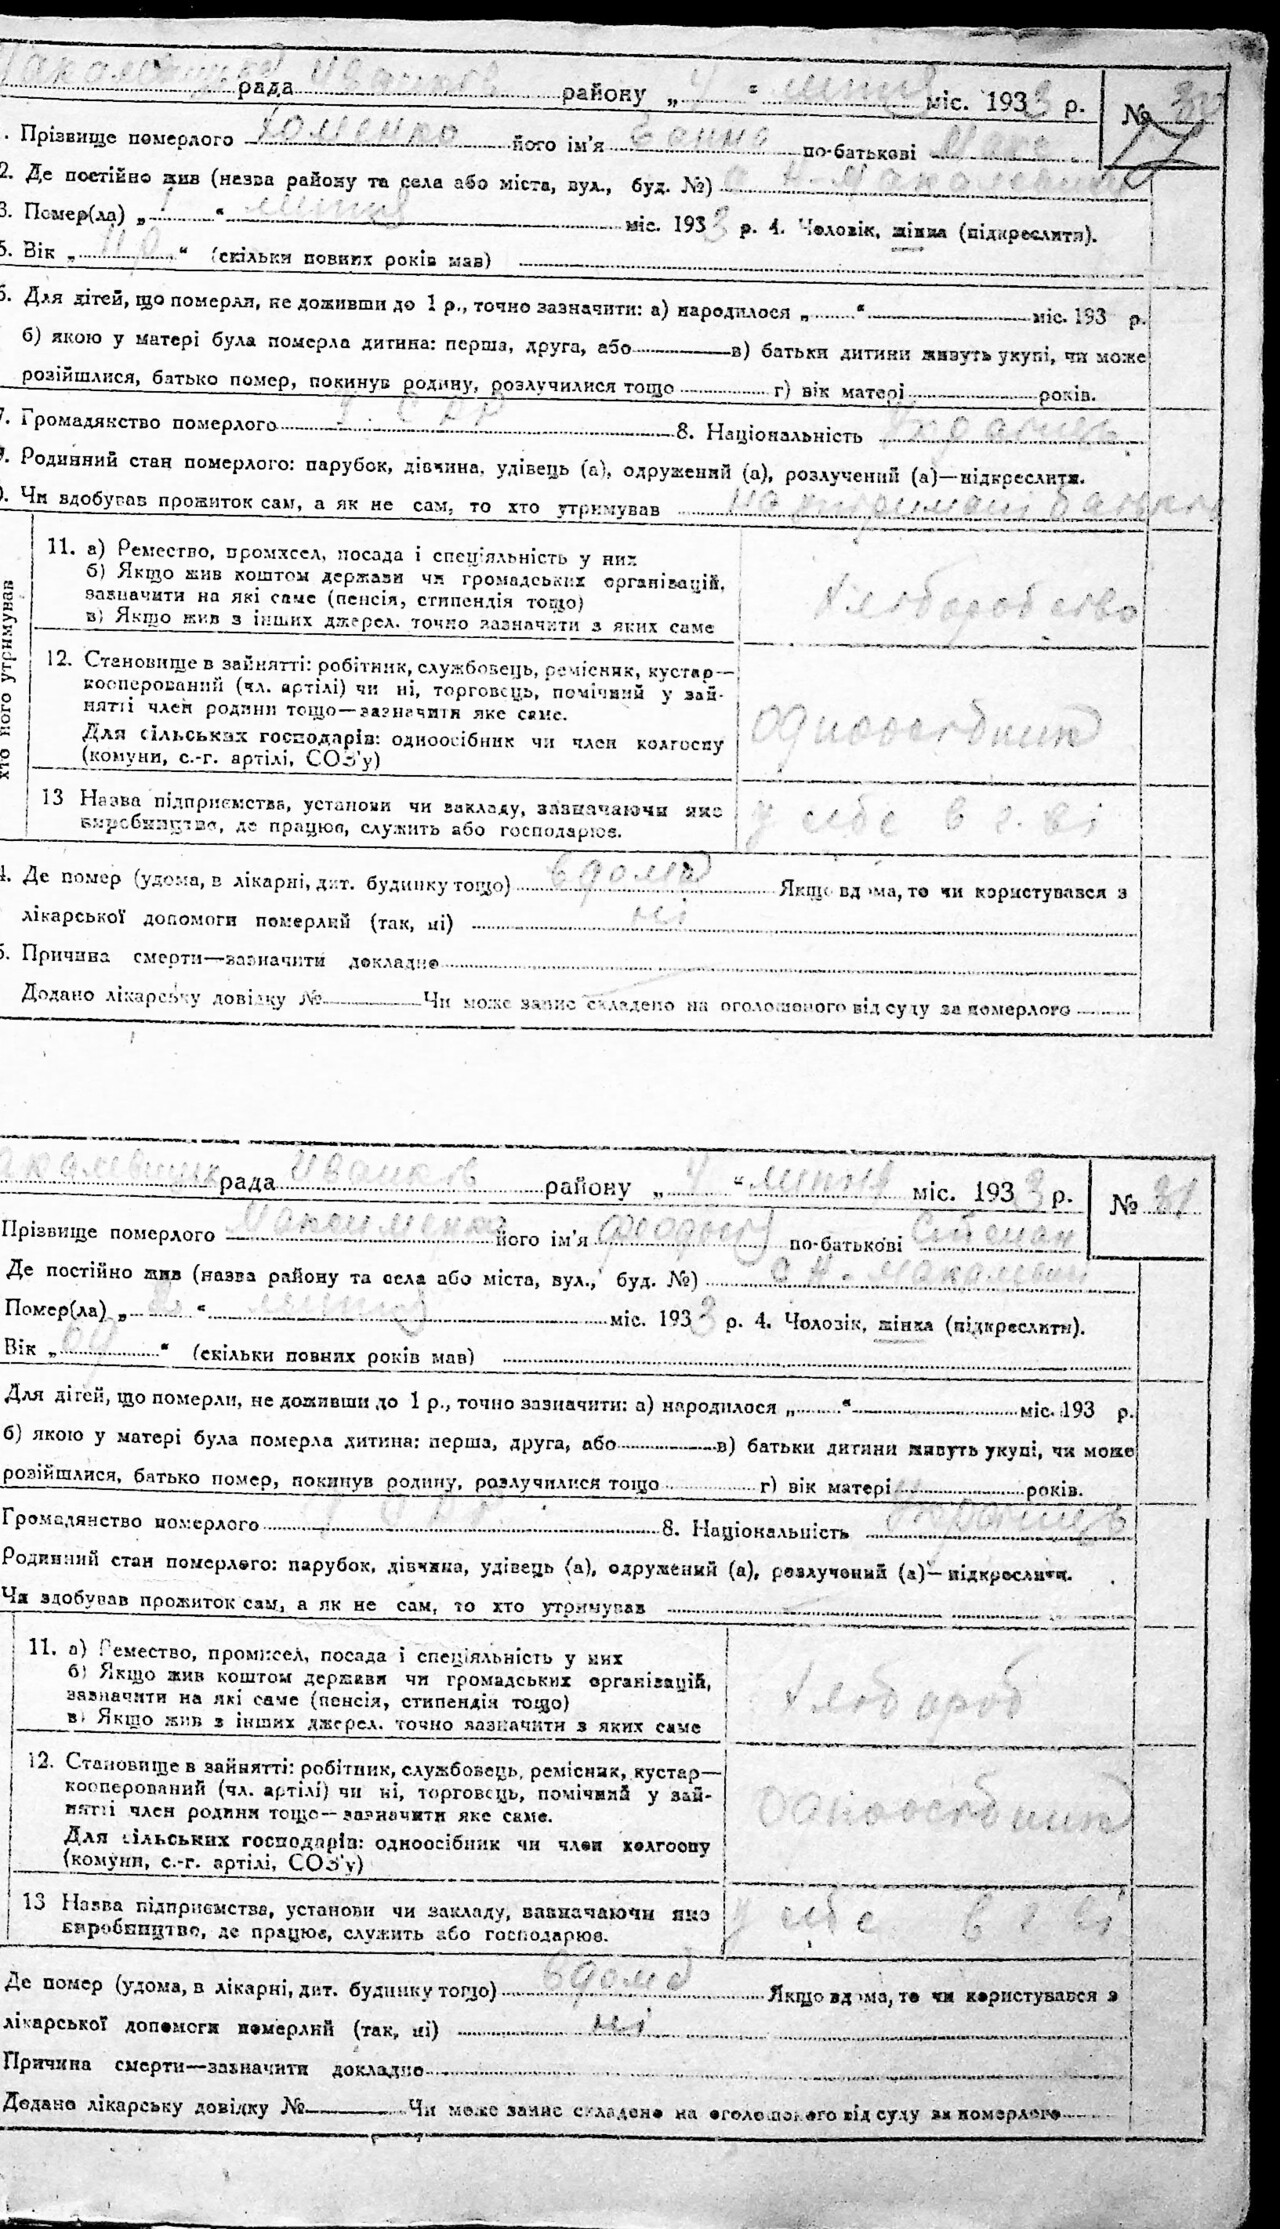 рада Иванков району „ 4 “ липня міс. 1933 р. № 30
17
Прізвище померлого Хоменко його ім'я Ганна по-батькові Макс
2. Де постійно жив (незва району та села або міста, вул., буд. №) с Н-Макалевичи
3. Помер(ла) „ 1 “ липня міс. 1933 р. 4. Чоловік, жінка (підкреслити).
5. Вік „ “ (скільки повних років мав)
6. Для дітей, що померли, не доживши до 1 р., точно зазначити: а) народилося „ “ міс. 193 р.
б) якою у матері була померла дитина: перша, друга, або в) батьки дитини живуть укупі, чи може
розійшлися, батько помер, покинув родину, розлучилися тощо г) вік матері років.
7. Громадянство померлого УСРР 8. Національність Українець
9. Родинний стан померлого: парубок, дівчина, удівець (а), одружений (а), розлучений (а)—підкреслити.
Чи здобував прожиток сам, а як не сам, то хто утримував на утримані батька
хто його утримував
11. а) Ремество, промисел, посада і спеціяльність у них
б) Якщо жив коштом держави чи громадських організацій,
зазначити на які саме (пенсія, стипендія тощо)
в) Якщо жив з інших джерел. точно зазначити з яких саме
Хлібородство
12. Становище в зайнятті: робітник, службовець, ремісник, кустар—
кооперований (чл. артілі) чи ні, торговець, помічний у зай-
нятті член родини тощо—зазначити яке саме.
Для сільських господарів: одноосібник чи член колгоспу
(комуни, с.-г. артілі, СОЗ'у)
одноосібник
13 Назва підприємства, установи чи закладу, зазначаючи яке
виробництво, де працює, служить або господарює.
у себе в г. ві
Де помер (удома, в лікарні, дит. будинку тощо) вдома Якщо вдома, то чи користувався з
лікарської допомоги померлий (так, ні) ні
Причина смерти—зазначити докладно
Додано лікарську довідку № Чи може запис складено на оголошеного від суду за померлого
рада Иванков району „ 4 “ липня міс. 1933 р. № 31
Прізвище померлого Максименко його ім'я по-батькові Степан
Де постійно жив (назва району та села або міста, вул., буд. №) с Н-Макалевичи
Помер(ла) „ 2 “ липня міс. 1933 р. 4. Чоловік, жінка (підкреслити).
Вік „ “ (скільки повних років мав)
Для дітей, що померли, не доживши до 1 р., точно зазначити: а) народилося „ “ міс. 193 р.
б) якою у матері була померла дитина: перша, друга, або в) батьки дитини живуть укупі, чи може
розійшлися, батько помер, покинув родину, розлучилися тощо г) вік матері років.
Громадянство померлого 8. Національність Українець
Родинний стан померлого: парубок, дівчина, удівець (а), одружений (а), розлучений (а)—підкреслити.
Чи здобував прожиток сам, а як не сам, то хто утримував
11. а) Ремество, промисел, посада і спеціяльність у них
б) Якщо жив коштом держави чи громадських організацій,
зазначити на які саме (пенсія, стипендія тощо)
в) Якщо жив з інших джерел. точно зазначити з яких саме
Хлібороб
12. Становище в зайнятті: робітник, службовець, ремісник, кустар—
кооперований (чл. артілі) чи ні, торговець, помічний у зай-
нятті член родини тощо—зазначити яке саме.
Для сільських господарів: одноосібник чи член колгоспу
(комуни, с.-г. артілі, СОЗ'у)
одноосібник
13 Назва підприємства, установи чи закладу, зазначаючи яке
виробництво, де працює, служить або господарює.
у себе в г ві
Де помер (удома, в лікарні, дит. будинку тощо) вдома Якщо вдома, то чи користувався з
лікарської допомоги померлий (так, ні) ні
Причина смерти—зазначити докладно
Додано лікарську довідку № Чи може запис складено на оголошеного від суду за померлого